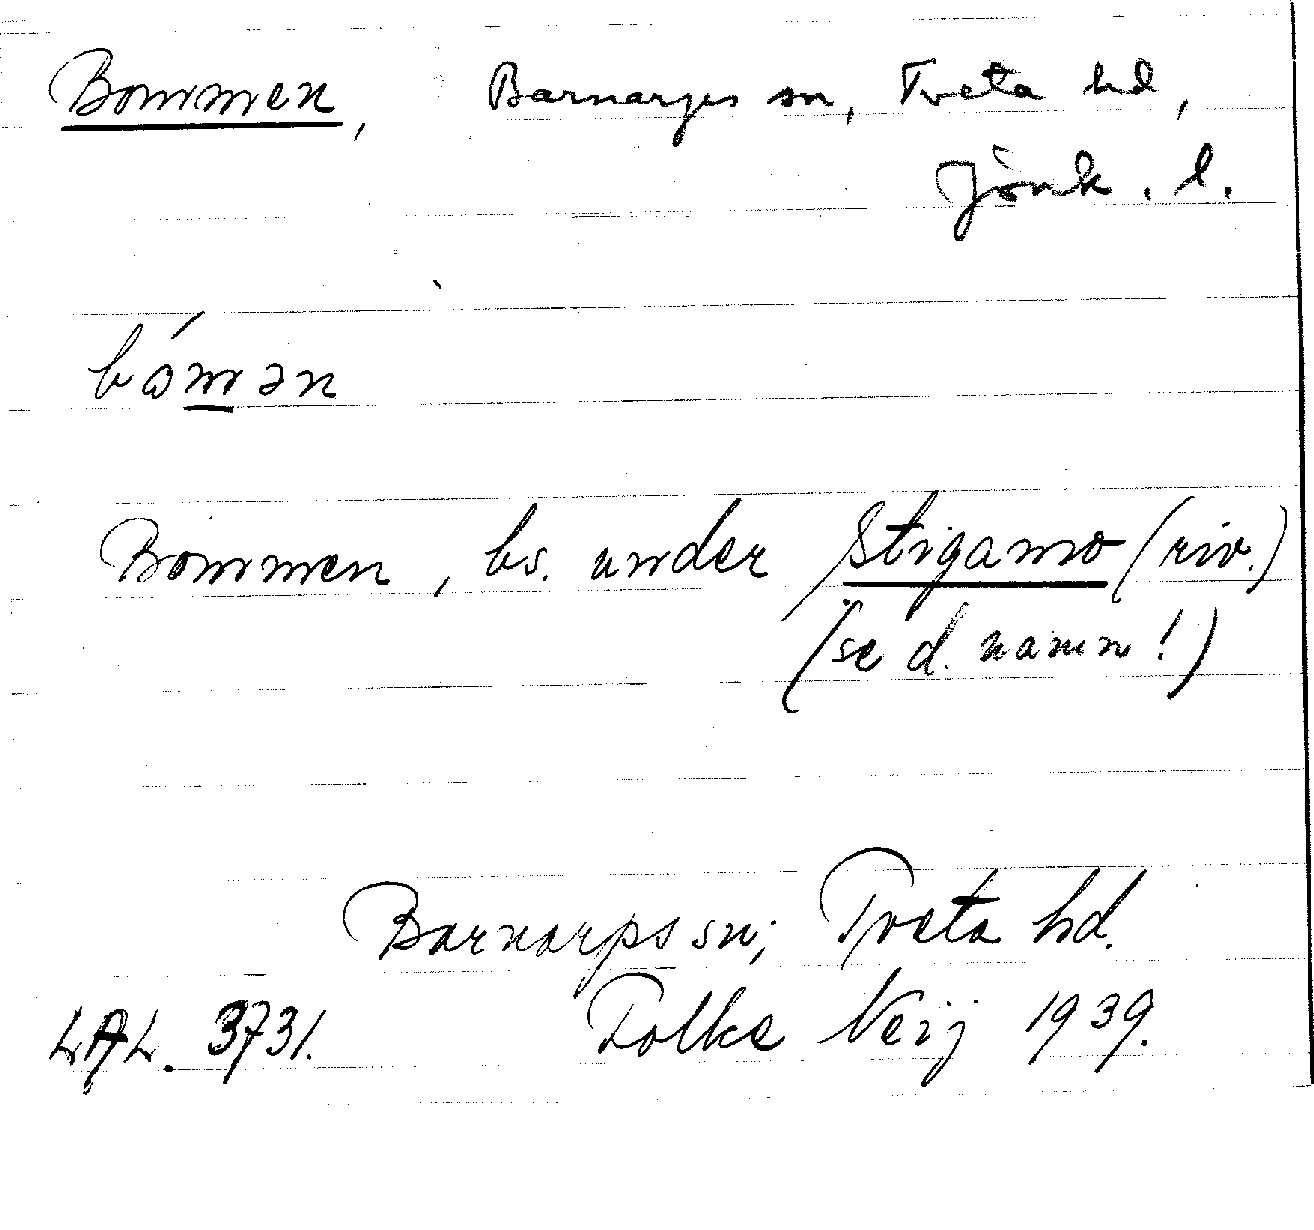 Bommen, Barnarps sn, Tveta hd,
Jönk. l.
bómən
Bommen, bs. under Stigamo (riv.)
(se d. namn!)
Barnarps sn; Tveta hd.
LAL. 3731. Folke Neij 1939.